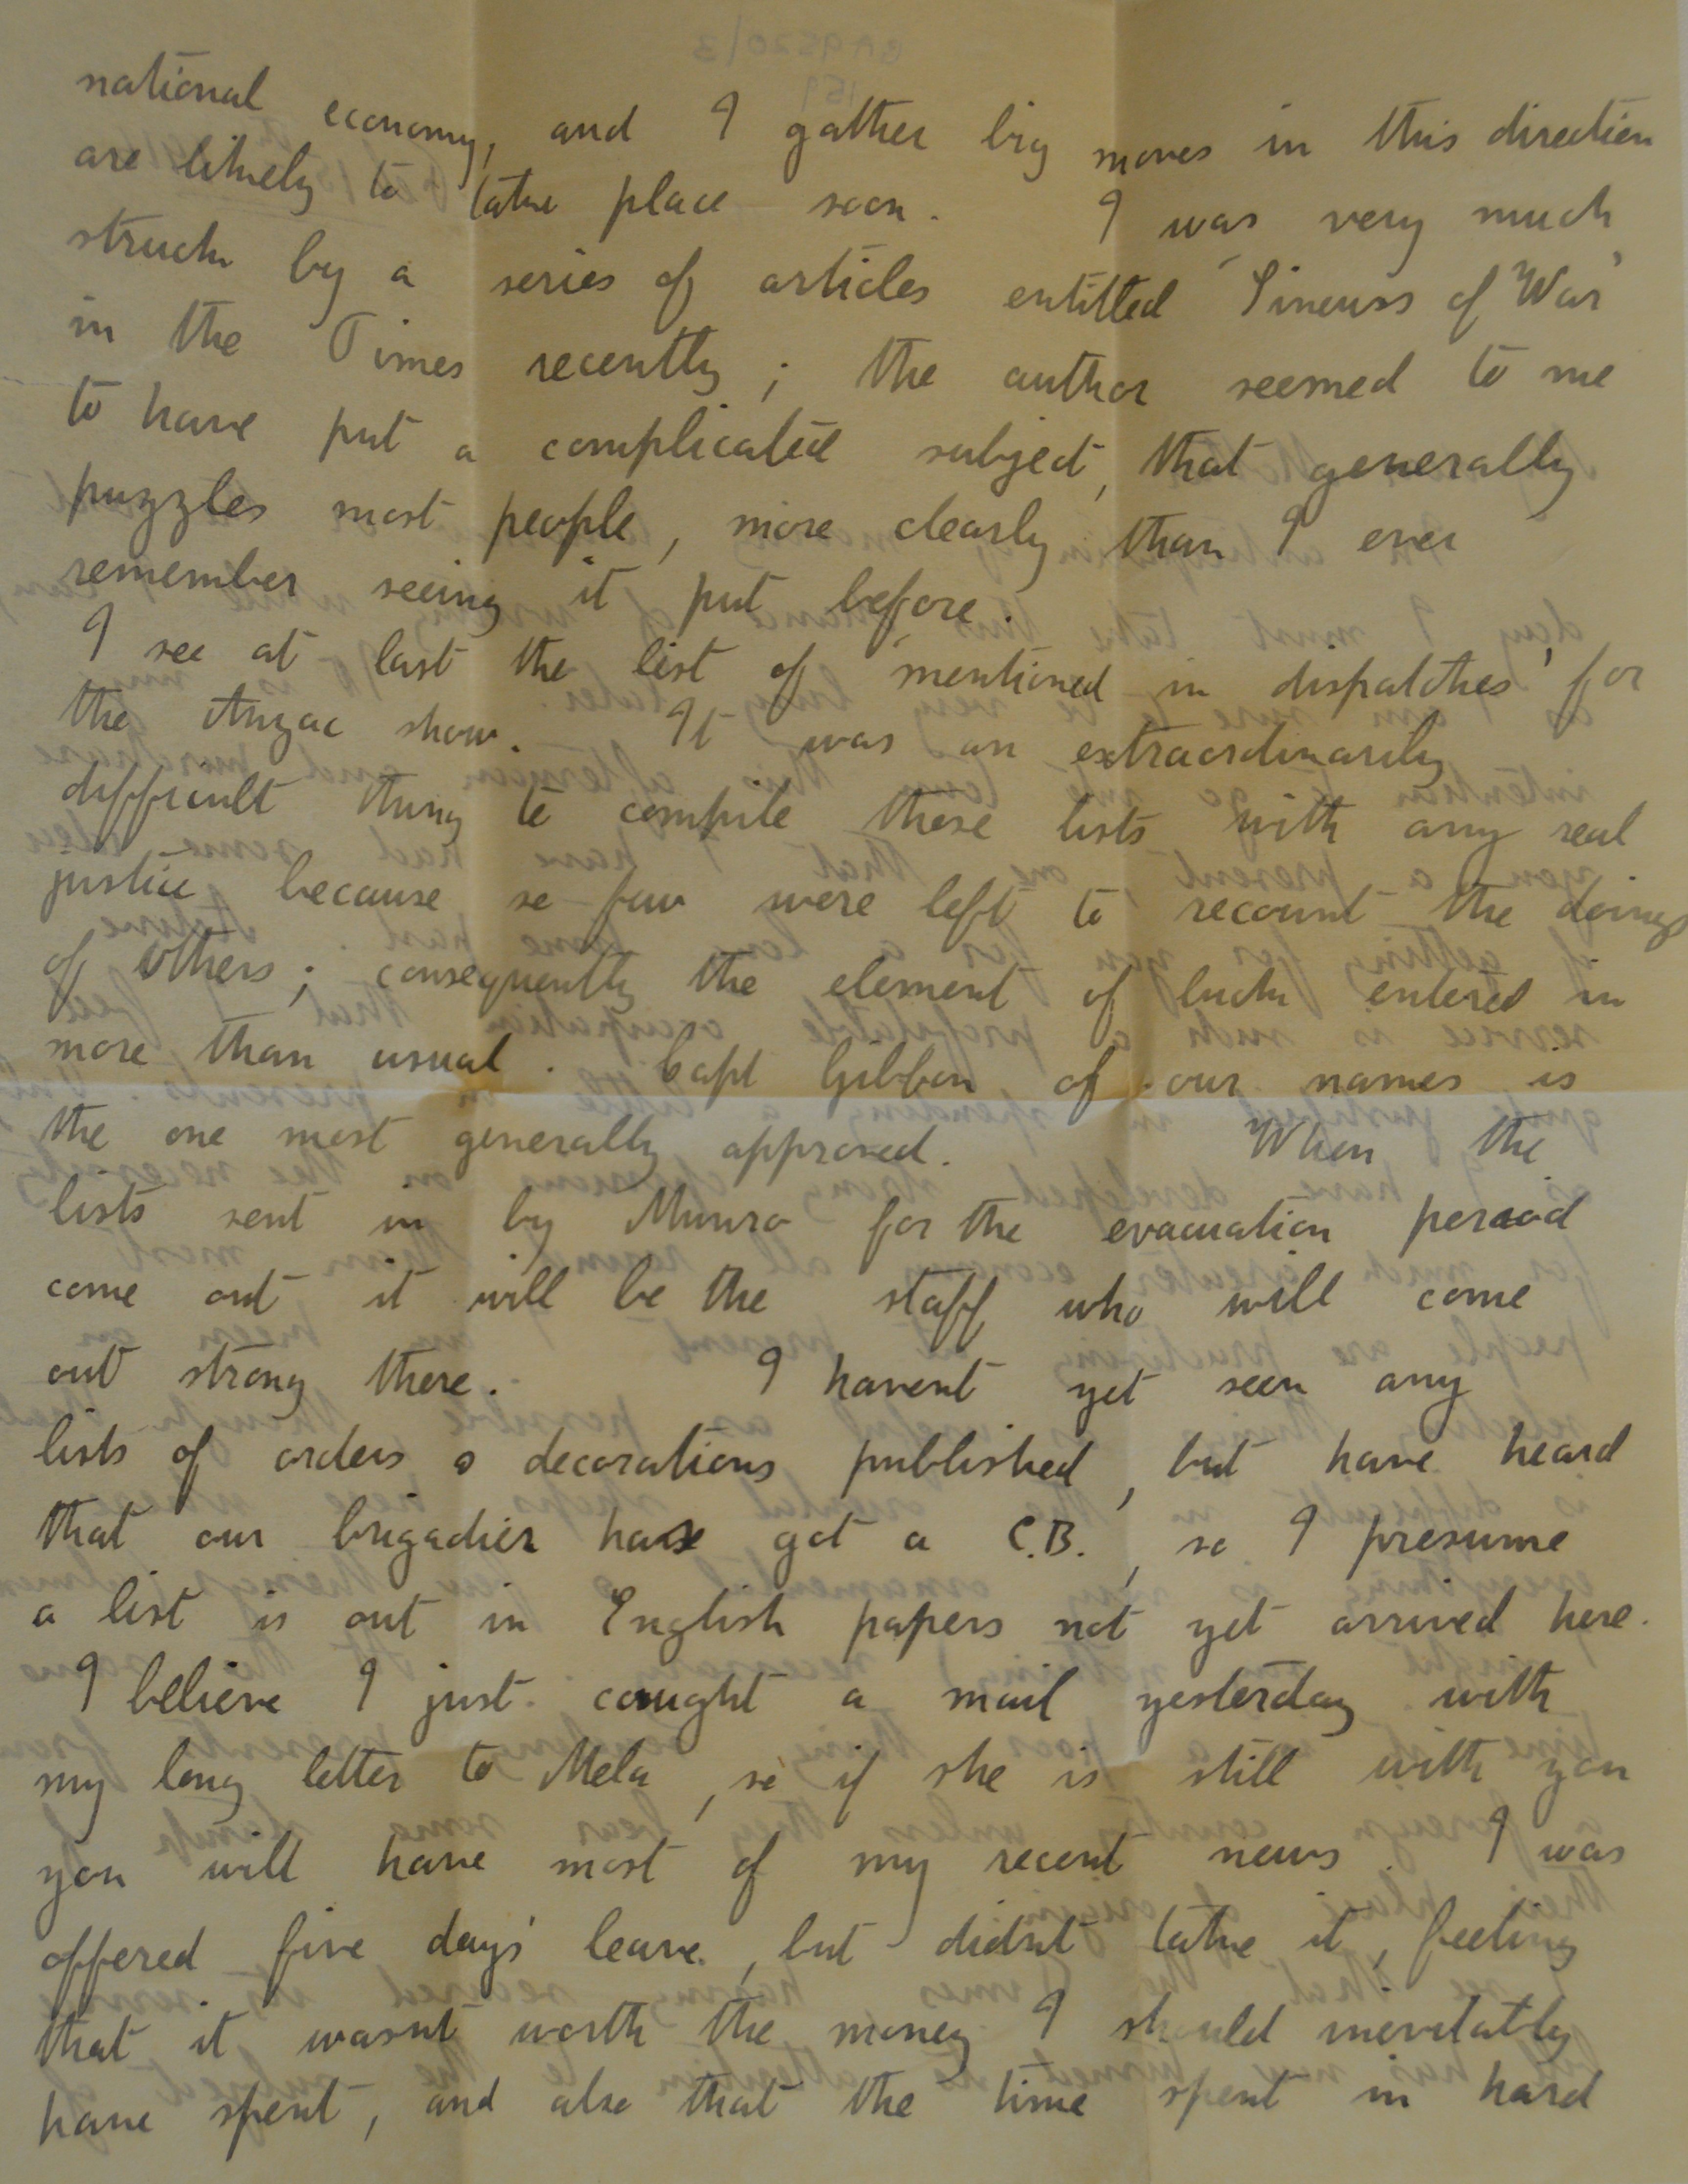 national economy, and I gather big moves in this direction
are likely to take place soon. I was very much
struck by a series of articles entitled 'Sinews of War'
in the Times recently; the author seemed to me
to have put a complicated subject, that generally
puzzles most people, more clearly than I ever
remember seeing it put before.
I see at last the list of 'mentioned in dispatches' for
the Anzac show. It was an extraordinarily
difficult thing to compile these lists with any real
justice because so few were left to recount the doings
of others; consequently the element of luck entered in
more than usual. Capt Gibbon of our names is
the one most generally approved. When the
lists sent in by Munro for the evacuation period
come out it will be the staff who will come
out strong there. I havent yet seen any
lists of orders & decorations published, but have heard
that our brigadier has got a C.B., so I presume
a list is out in English papers not yet arrived here.
I believe I just caught a mail yesterday with
my long letter to Mela, so if she is still with you
you will have most of my recent news. I was
offered five days' leave, but didnt take it, feeling
that it wasnt worth the money I should inevitably
have spent, and also that the time spent in hard